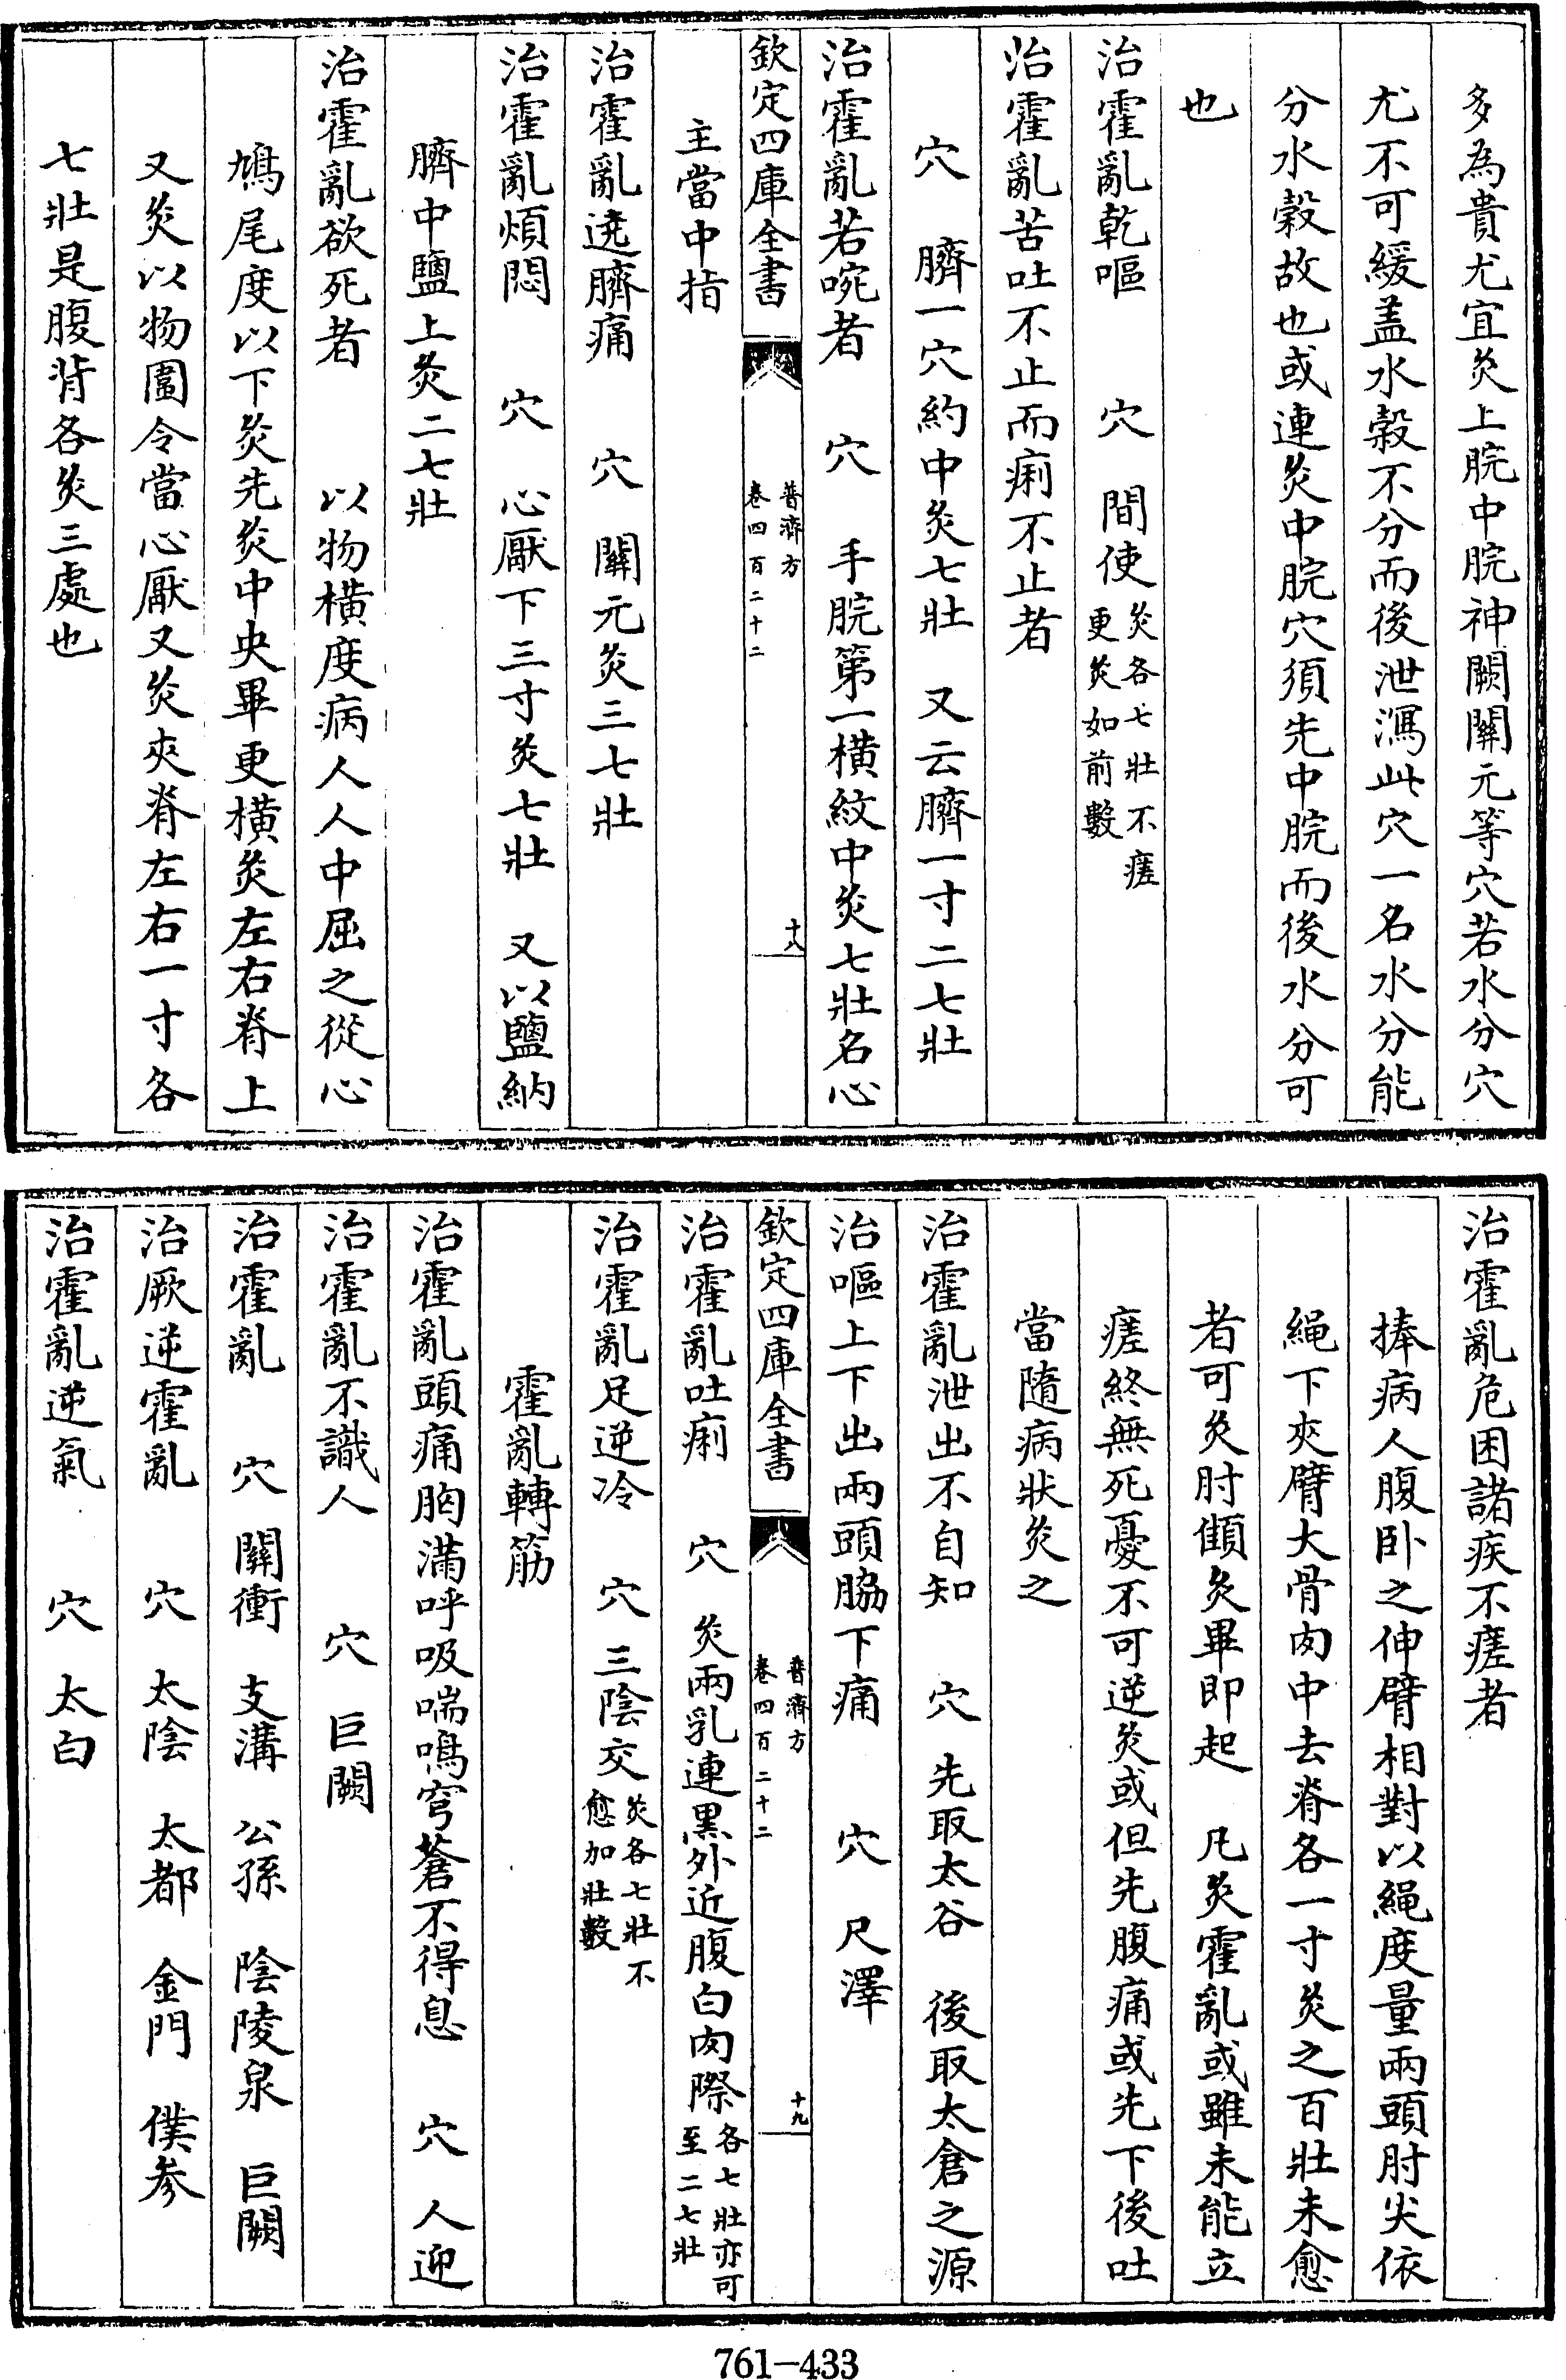 多為貴尤宜灸上脘中脘神闕關元等穴若水分穴
尤不可緩盖水穀不分而後泄瀉此穴一名水分能
分水穀故也或連灸中脘穴須先中脘而後水分可
也
治霍亂乾嘔　穴　間使灸各七壯不瘥更灸如前數
治霍亂苦吐不止而痢不止者
穴　臍一穴約中灸七壯　又云臍一寸二七壯
治霍亂若啘者　穴　手脘第一橫紋中灸七壯名心
欽定四庫全書　普濟方　卷四百二十二　十八
主當中指
治霍亂遶臍痛　穴　關元灸三七壯
治霍亂煩悶　穴　心厭下三寸灸七壯　又以鹽納
臍中鹽上灸二七壯
治霍亂欲死者　以物橫度病人人中屈之從心
鳩尾度以下灸先灸中央畢更橫灸左右脊上
又灸以物圍令當心厭又灸夾脊左右一寸各
七壯是腹背各灸三處也
治霍亂危困諸疾不瘥者
捧病人腹卧之伸臂相對以繩度量兩頭肘尖依
繩下夾臂大骨肉中去脊各一寸灸之百壯未愈
者可灸肘顀灸畢即起　凡灸霍亂或雖未能立
瘥終無死憂不可逆灸或但先腹痛或先下後吐
當隨病狀灸之
治霍亂泄出不自知　穴　先取太谷　後取太倉之源
治嘔上下出兩頭脇下痛　穴　尺澤
欽定四庫全書　普濟方　卷四百二十二　十九
治霍亂吐痢　穴　灸兩乳連黑外近腹白肉際各七壯亦可至二七壯
治霍亂足逆冷　穴　三陰交灸各七壯不愈加壯數
霍亂轉筋
治霍亂頭痛胸滿呼吸喘鳴穹蒼不得息　穴　人迎
治霍亂不識人　穴　巨闕
治霍亂　穴　關衝　支溝　公孫　陰陵泉　巨闕
治厥逆霍亂　穴　太陰　太都　金門　僕參
治霍亂逆氣　穴　太白
761-433